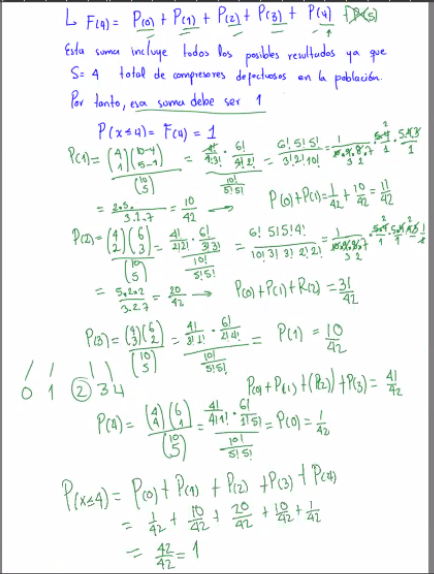 ↳ F(4) = P(0) + P(1) + P(2) + P(3) + P(4) + P(5)
Esta suma incluye todos los posibles resultados ya que
S = 4 total de compresores defectuosos en la población.
Por tanto, esa suma debe ser 1
P(x≤4) = F(4) = 1
P(1) = (4 1)(10-4 5-1) / (10 5) = 4!/1!3! · 6!/4!2! / 10!/5!5! = 6! 5! 5! / 3! 2! 10! =
= 2·5· / 3·2·7 = 10/42 → P(0)+P(1) = 1/42 + 10/42 = 11/42
P(2) = (4 2)(6 3) / (10 5) = 4!/2!2! · 6!/3!3! / 10!/5!5! = 6! 5! 5! 4! / 10! 3! 3! 2! 2! =
= 5·2·2 / 3·2·7 = 20/42 → P(0)+P(1)+P(2) = 31/42
P(3) = (4 3)(6 2) / (10 5) = 4!/3!1! · 6!/2!4! / 10!/5!5! = P(1) = 10/42
0 1 2 3 4
P(0)+P(1)+(P(2))+P(3) = 41/42
P(4) = (4 4)(6 1) / (10 5) = 4!/4!1! · 6!/1!5! / 10!/5!5! = P(0) = 1/42
P(x≤4) = P(0) + P(1) + P(2) + P(3) + P(4)
= 1/42 + 10/42 + 20/42 + 10/42 + 1/42
= 42/42 = 1